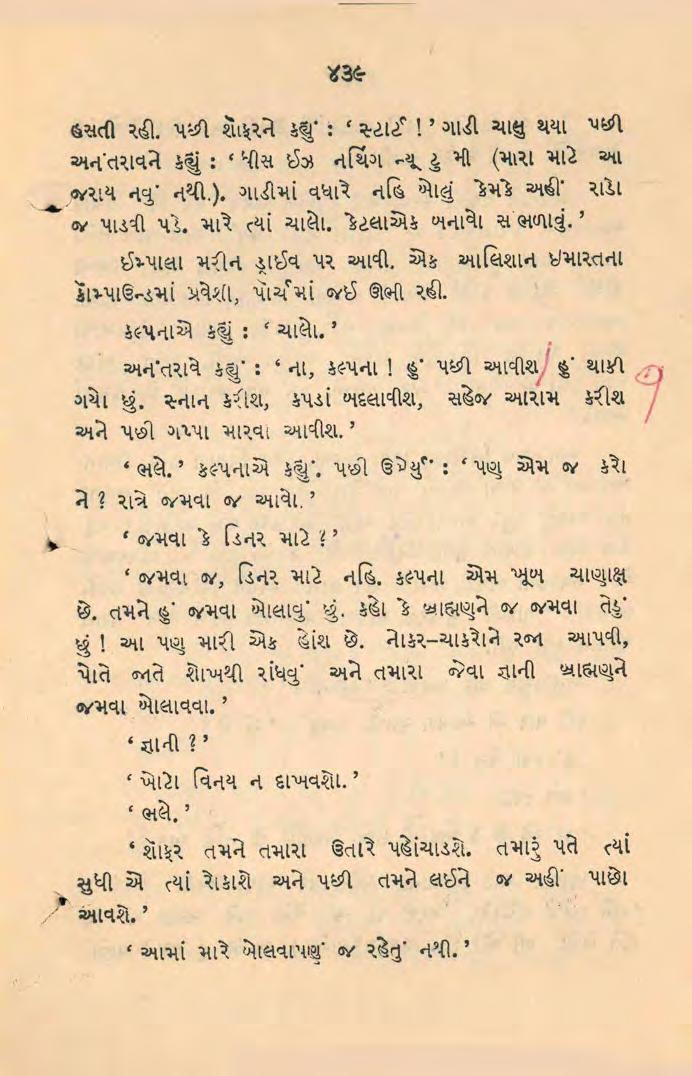 ૪૩૯
હસતી રહી. પછી શૉફરને કહ્યું : ‘ સ્ટાર્ટ ! ’ ગાડી ચાલુ થયા પછી
અનંતરાવને કહ્યું : ‘ ધીસ ઈઝ નથિંગ ન્યૂ ટુ મી (મારા માટે આ
જરાય નવું નથી.). ગાડીમાં વધારે નહિ બોલું કેમકે અહીં રાડો
જ પાડવી પડે. મારે ત્યાં ચાલો. કેટલાએક બનાવો સંભળાવું. ’
ઈમ્પાલા મરીન ડ્રાઈવ પર આવી. એક આલિશાન ઇમારતના
કૉમ્પાઉન્ડમાં પ્રવેશી, પૉર્ચમાં જઈ ઊભી રહી.
કલ્પનાએ કહ્યું : ‘ ચાલો. ’
અનંતરાવે કહ્યું : ‘ ના, કલ્પના ! હું પછી આવીશ હું થાકી
ગયો છું. સ્નાન કરીશ, કપડાં બદલાવીશ, સહેજ આરામ કરીશ
અને પછી ગપ્પા મારવા આવીશ. ’
‘ ભલે. ’ કલ્પનાએ કહ્યું. પછી ઉમેર્યું : ‘ પણ એમ જ કરો
ને ? રાત્રે જમવા જ આવો. ’
‘ જમવા કે ડિનર માટે ? ’
‘ જમવા જ, ડિનર માટે નહિ. કલ્પના એમ ખૂબ ચાણાક્ષ
છે. તમને હું જમવા બોલાવું છું. કહો કે બ્રાહ્મણને જ જમવા તેડું
છું ! આ પણ મારી એક હોંશ છે. નોકર–ચાકરોને રજા આપવી,
પોતે જાતે શોખથી રાંધવું અને તમારા જેવા જ્ઞાની બ્રાહ્મણને
જમવા બોલાવવા. ’
‘ જ્ઞાની ? ’
‘ ખોટો વિનય ન દાખવશો. ’
‘ ભલે. ’
‘ શૉફર તમને તમારા ઉતારે પહોંચાડશે. તમારું પતે ત્યાં
સુધી એ ત્યાં રોકાશે અને પછી તમને લઈને જ અહીં પાછો
આવશે. ’
‘ આમાં મારે બોલવાપણું જ રહેતું નથી. ’